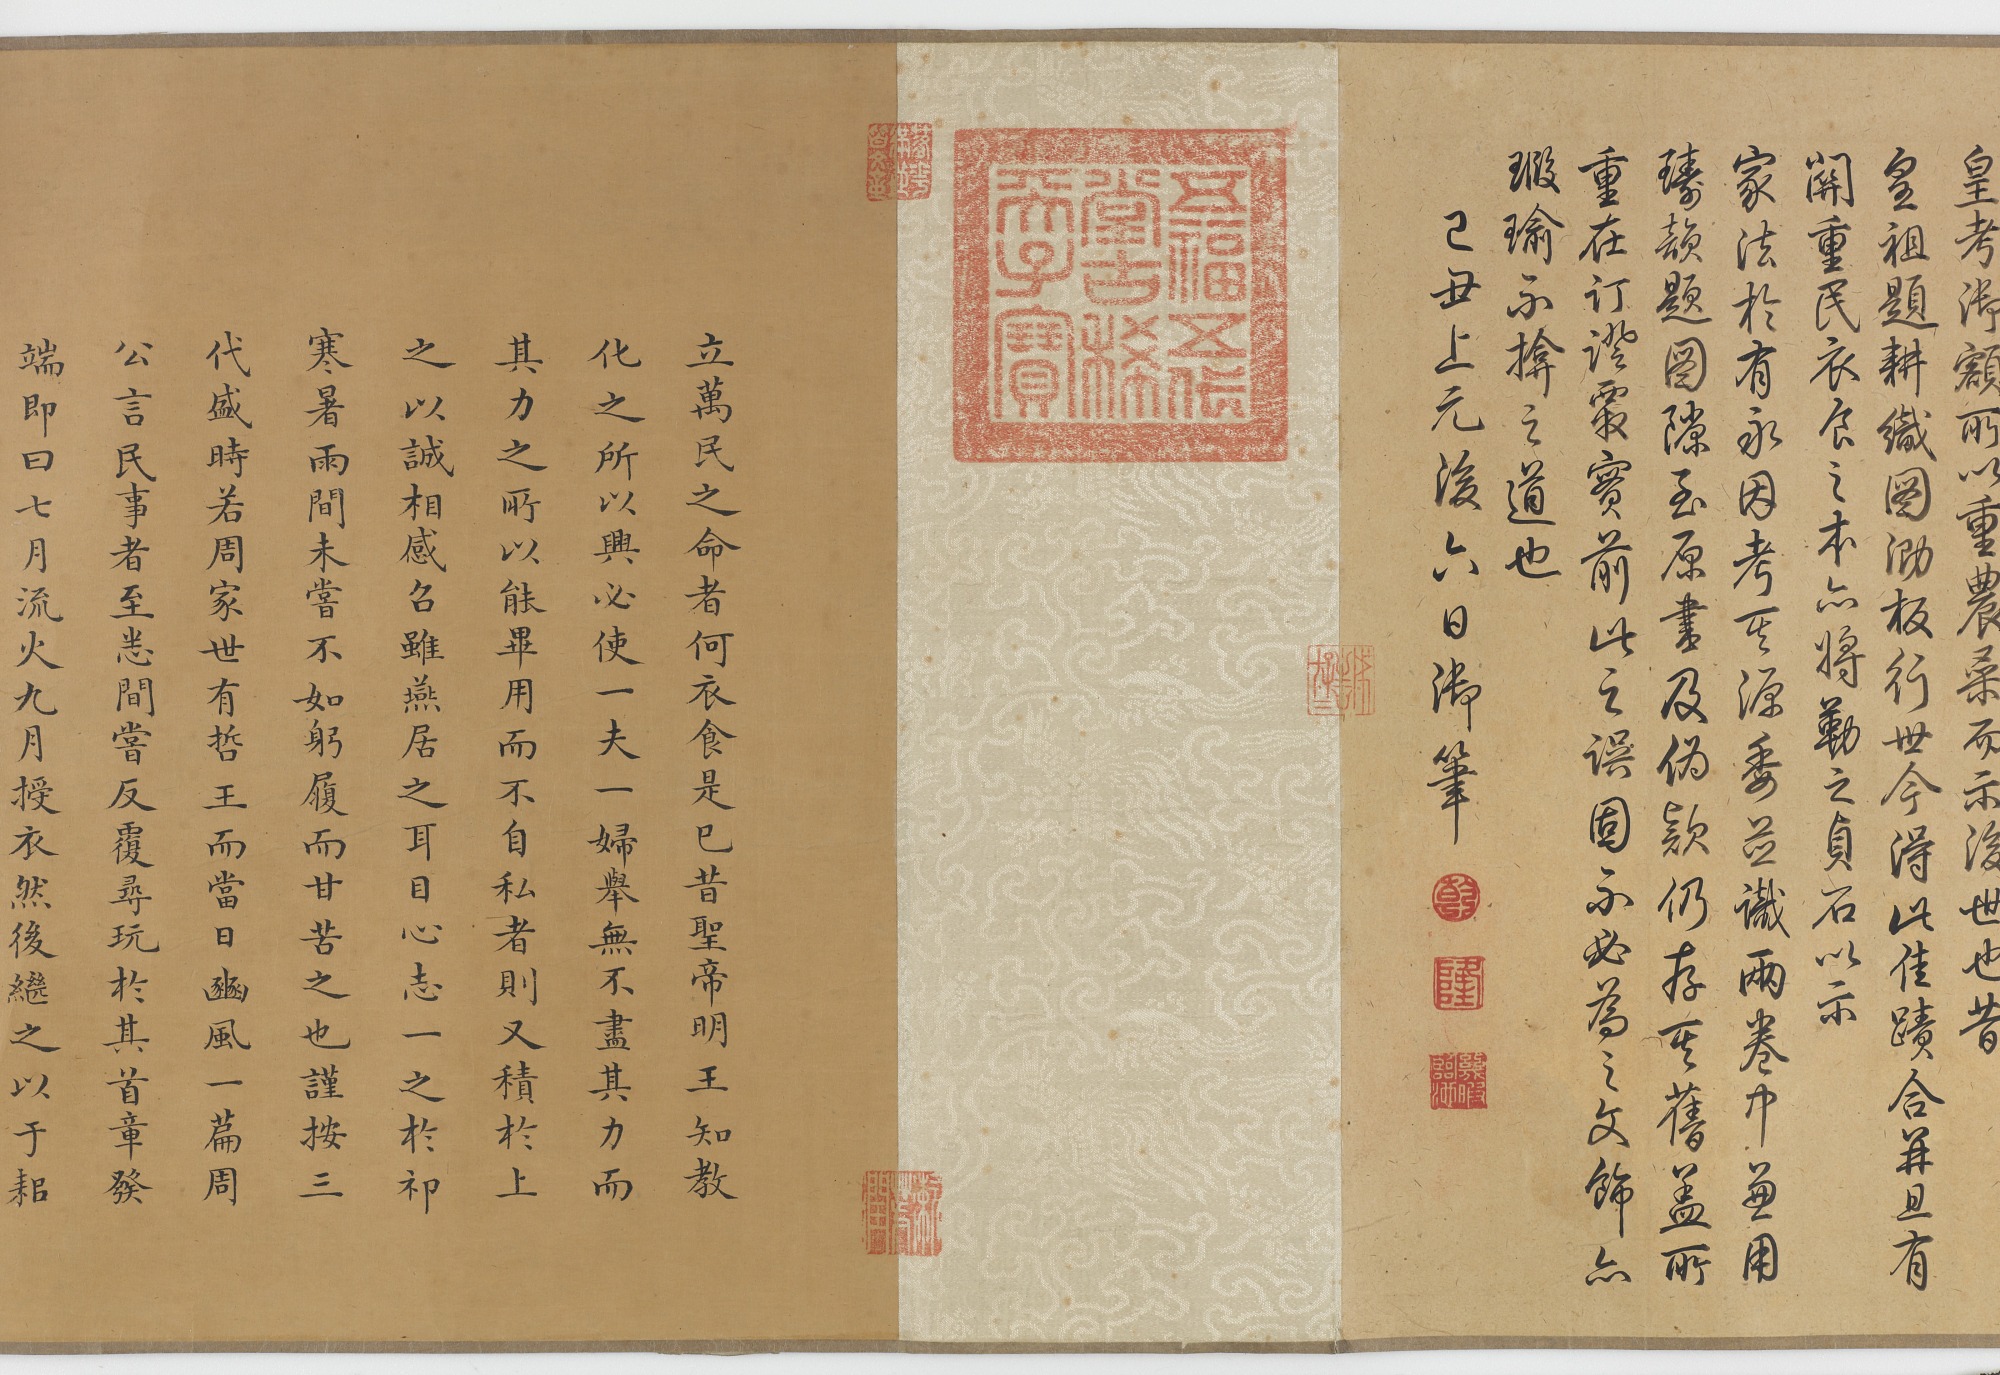 皇考御額所以重農桑而示後世也昔
皇祖題耕織圖泐板行世今得此佳蹟合并且有
關重民衣食之本亦將勒之貞石以示
家法於有永因考其源委並識兩卷中兼用
璹韻題圖隙至原書及偽款仍存其舊蓋所
重在訂證覈實前此之誤固不必為之文飾亦
瑕瑜不揜之道也
己丑上元後六日御筆
乾
隆
幾暇臨池
五福五代
堂古稀
天子寶
立萬民之命者何衣食是已昔聖帝明王知教
化之所以興必使一夫一婦舉無不盡其力而
其力之所以能畢用而不自私者則又積於上
之以誠相感召雖燕居之耳目心志一之於祁
寒暑雨間未嘗不如躬履而甘苦之也謹按三
代盛時若周家世有哲王而當日豳風一篇周
公言民事者至悉間嘗反覆尋玩於其首章發
端即曰七月流火九月授衣然後繼之以于耜